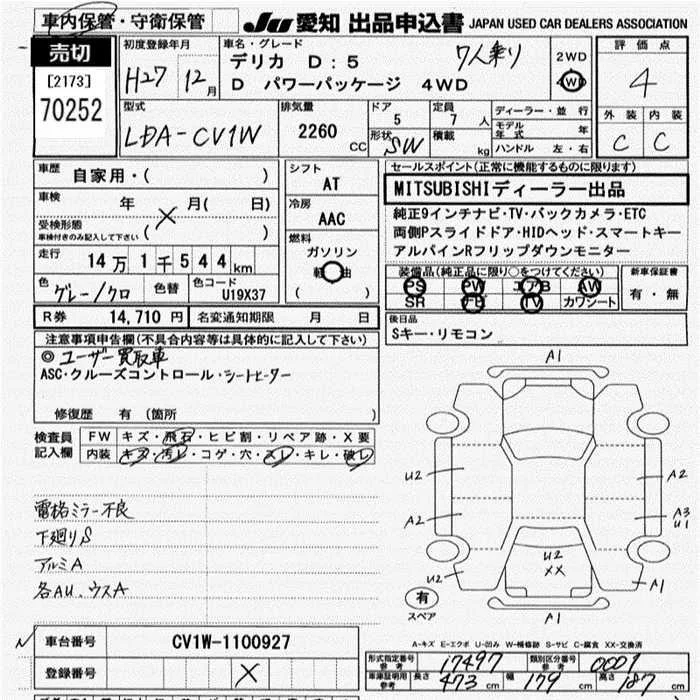 車内保管・守衛保管
JU 愛知 出品申込書 JAPAN USED CAR DEALERS ASSOCIATION
売切
[2173]
70252
初度登録年月
H27 12月
車名・グレード
デリカ D:5 7人乗り
D パワーパッケージ 4WD
2WD
4WD
評価点
4
外装 内装
C C
型式
LDA-CV1W
排気量
2260 CC
ドア
5
形状
SW
定員
7 人
積載 kg
ディーラー・並行
モデル年式 年
ハンドル 左・右
車歴
自家用・( )
車検 年 月( 日)
受検形態
車検付きのみ記入して下さい ( )
走行 14万1千544km
色 グレー/クロ 色替 色コード U19X37
シフト
AT
冷房
AAC
燃料
ガソリン
軽油
( )
セールスポイント(正常に機能するものに限ります)
MITSUBISHIディーラー出品
純正9インチナビ・TV・バックカメラ・ETC
両側Pスライドドア・HIDヘッド・スマートキー
アルパインRフリップダウンモニター
装備品(純正品に限り○をつけてください)
PS PW エアB AW
SR ナビ TV カワシート
新車保証書
有・無
R券 14,710円 名変通知期限 月 日
後日品
Sキー・リモコン
注意事項申告欄(不具合内容等は具体的に記入して下さい)
◎ユーザー買取車
ASC・クルーズコントロール・シートヒーター
修復歴 有 (箇所 )
検査員記入欄
FW キズ・飛石・ヒビ割・リペア跡・X要
内装 キズ・汚レ・コゲ・穴・スレ・キレ・破レ
電格ミラー不良
下廻りS
アルミA
各AU.ウスA
A1
U2
A2
A2
A3
U1
U2
U2
XX
A1
A1
有
スペア
車台番号 CV1W-1100927
登録番号
A-キズ E-エクボ U-凹み W-補修跡 S-サビ C-腐食 XX-交換済
形式指定番号 参考 17497 類別区分番号 参考 0001
車庫証明用 参考 長さ 473 cm 幅 179 cm 高さ 187 cm